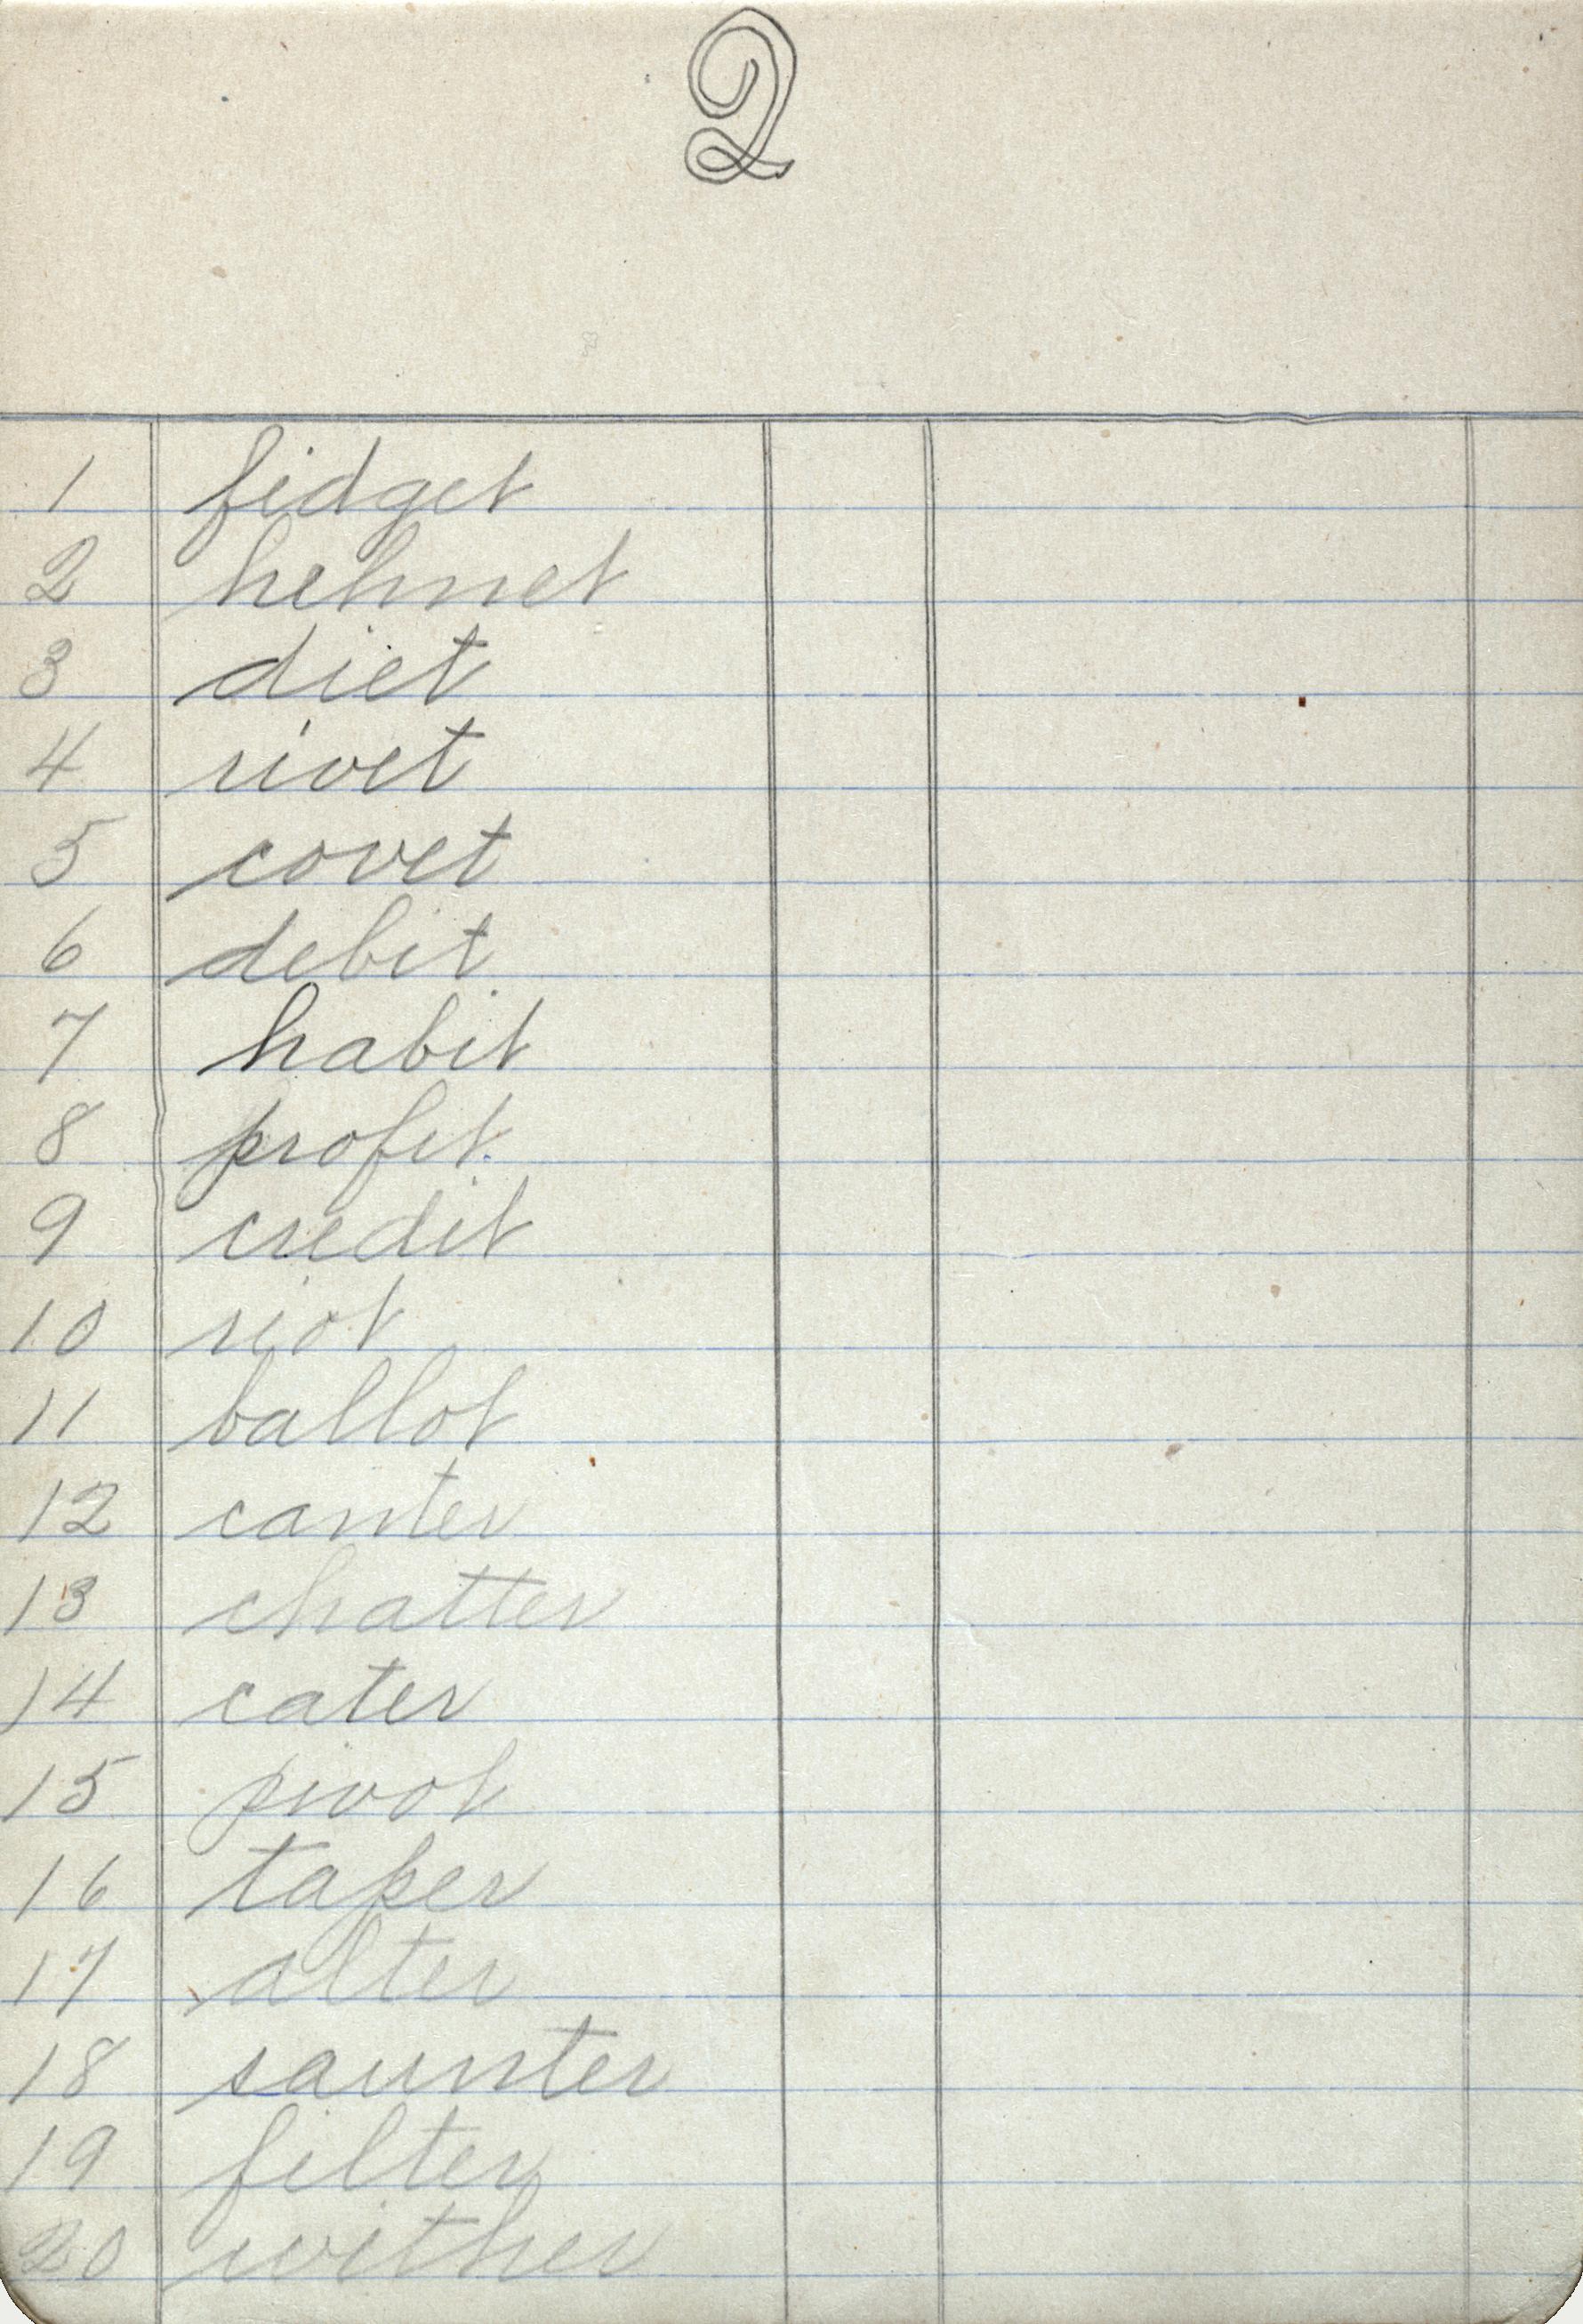 2
1 fidget
2 helmet
3 diet
4 rivet
5 covet
6 debit
7 habit
8 profit
9 credit
10 riot
11 ballot
12 canter
13 chatter
14 cater
15 pivot
16 taper
17 alter
18 saunter
19 filter
20 wither